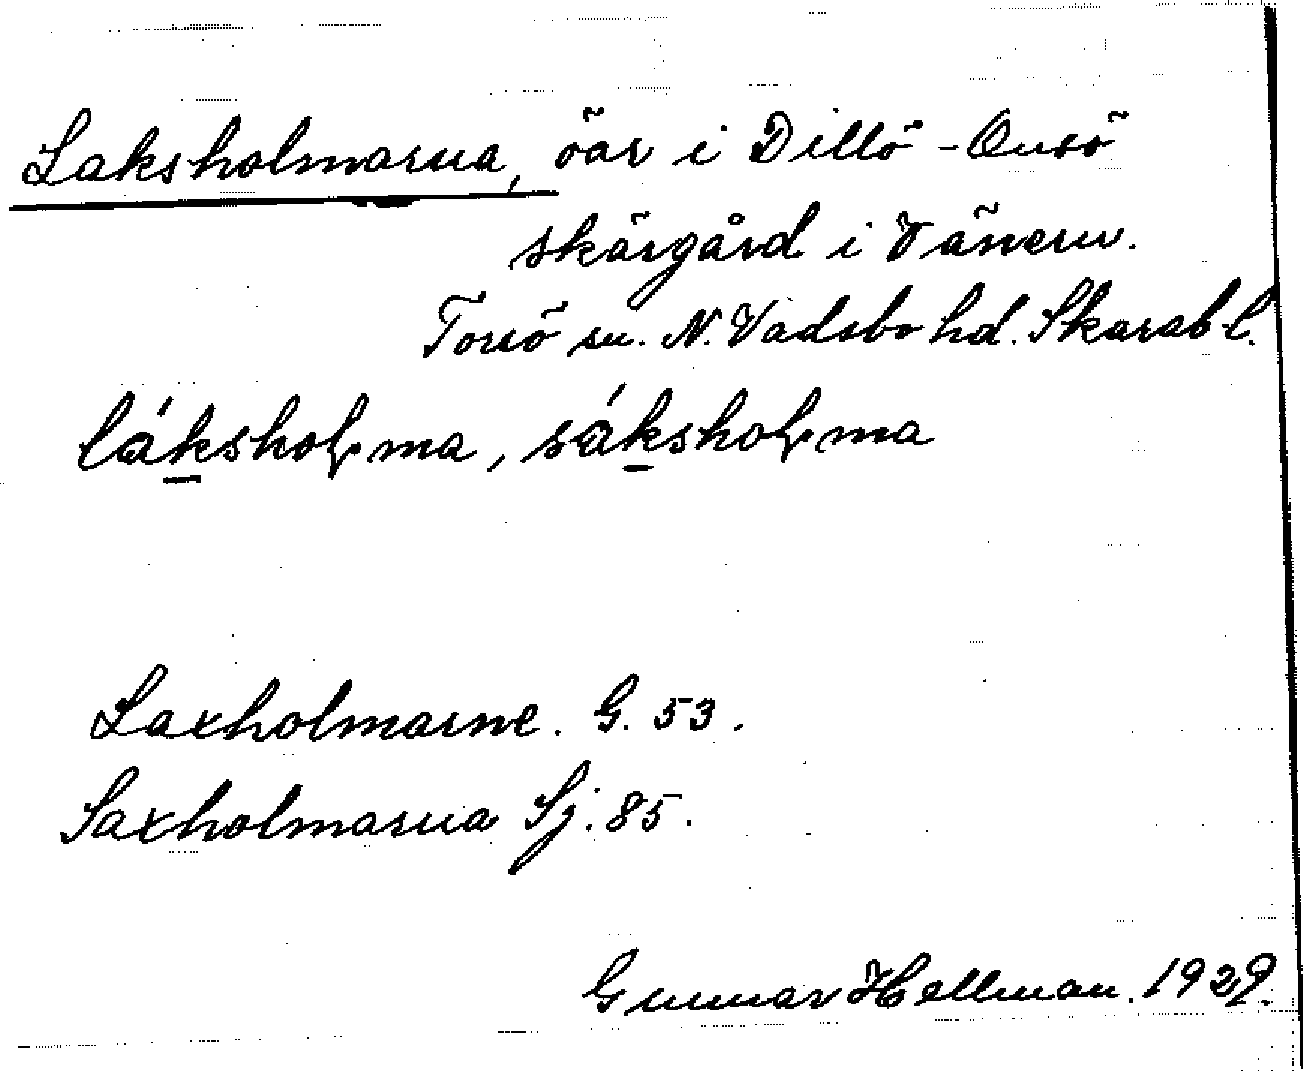 Laksholmarna, öar i Dillö-Onsö
skärgård i Vänern.
Torsö sn. N. Vadsbo hd. Skarab. l.
láksholma, sáksholma
Laxholmarne. G. 53.
Saxholmarna Sj. 85.
Gunnar Hellman. 1929.